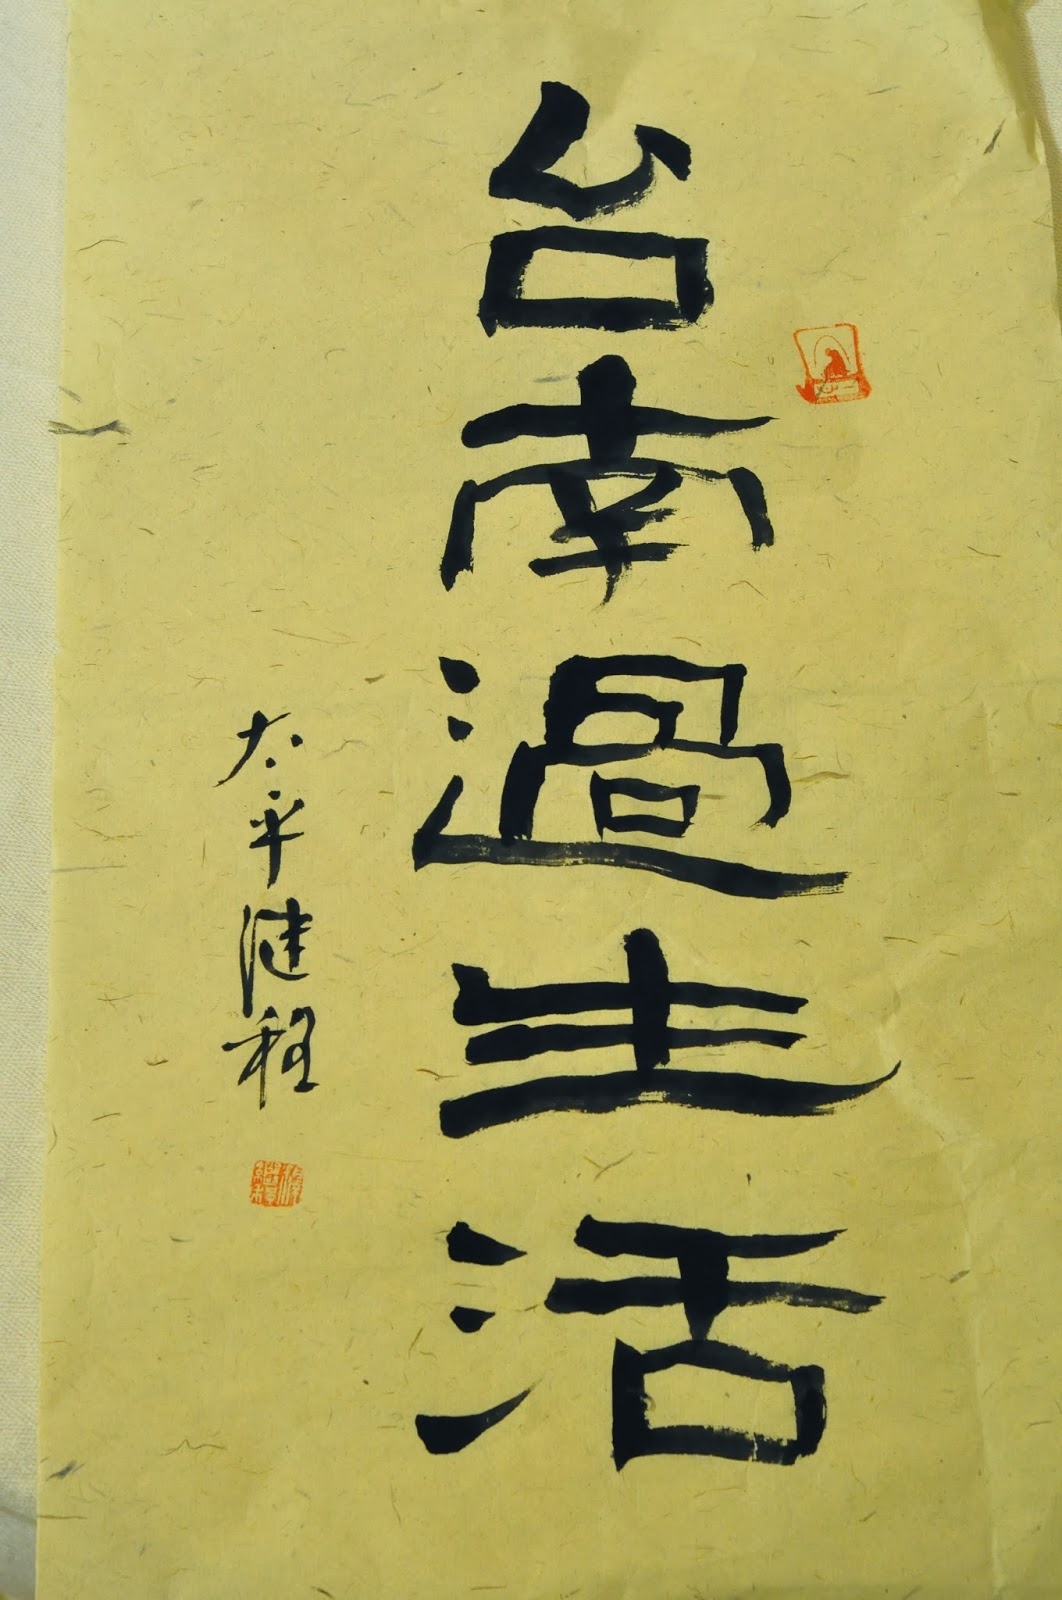 台南過生活
太平继程